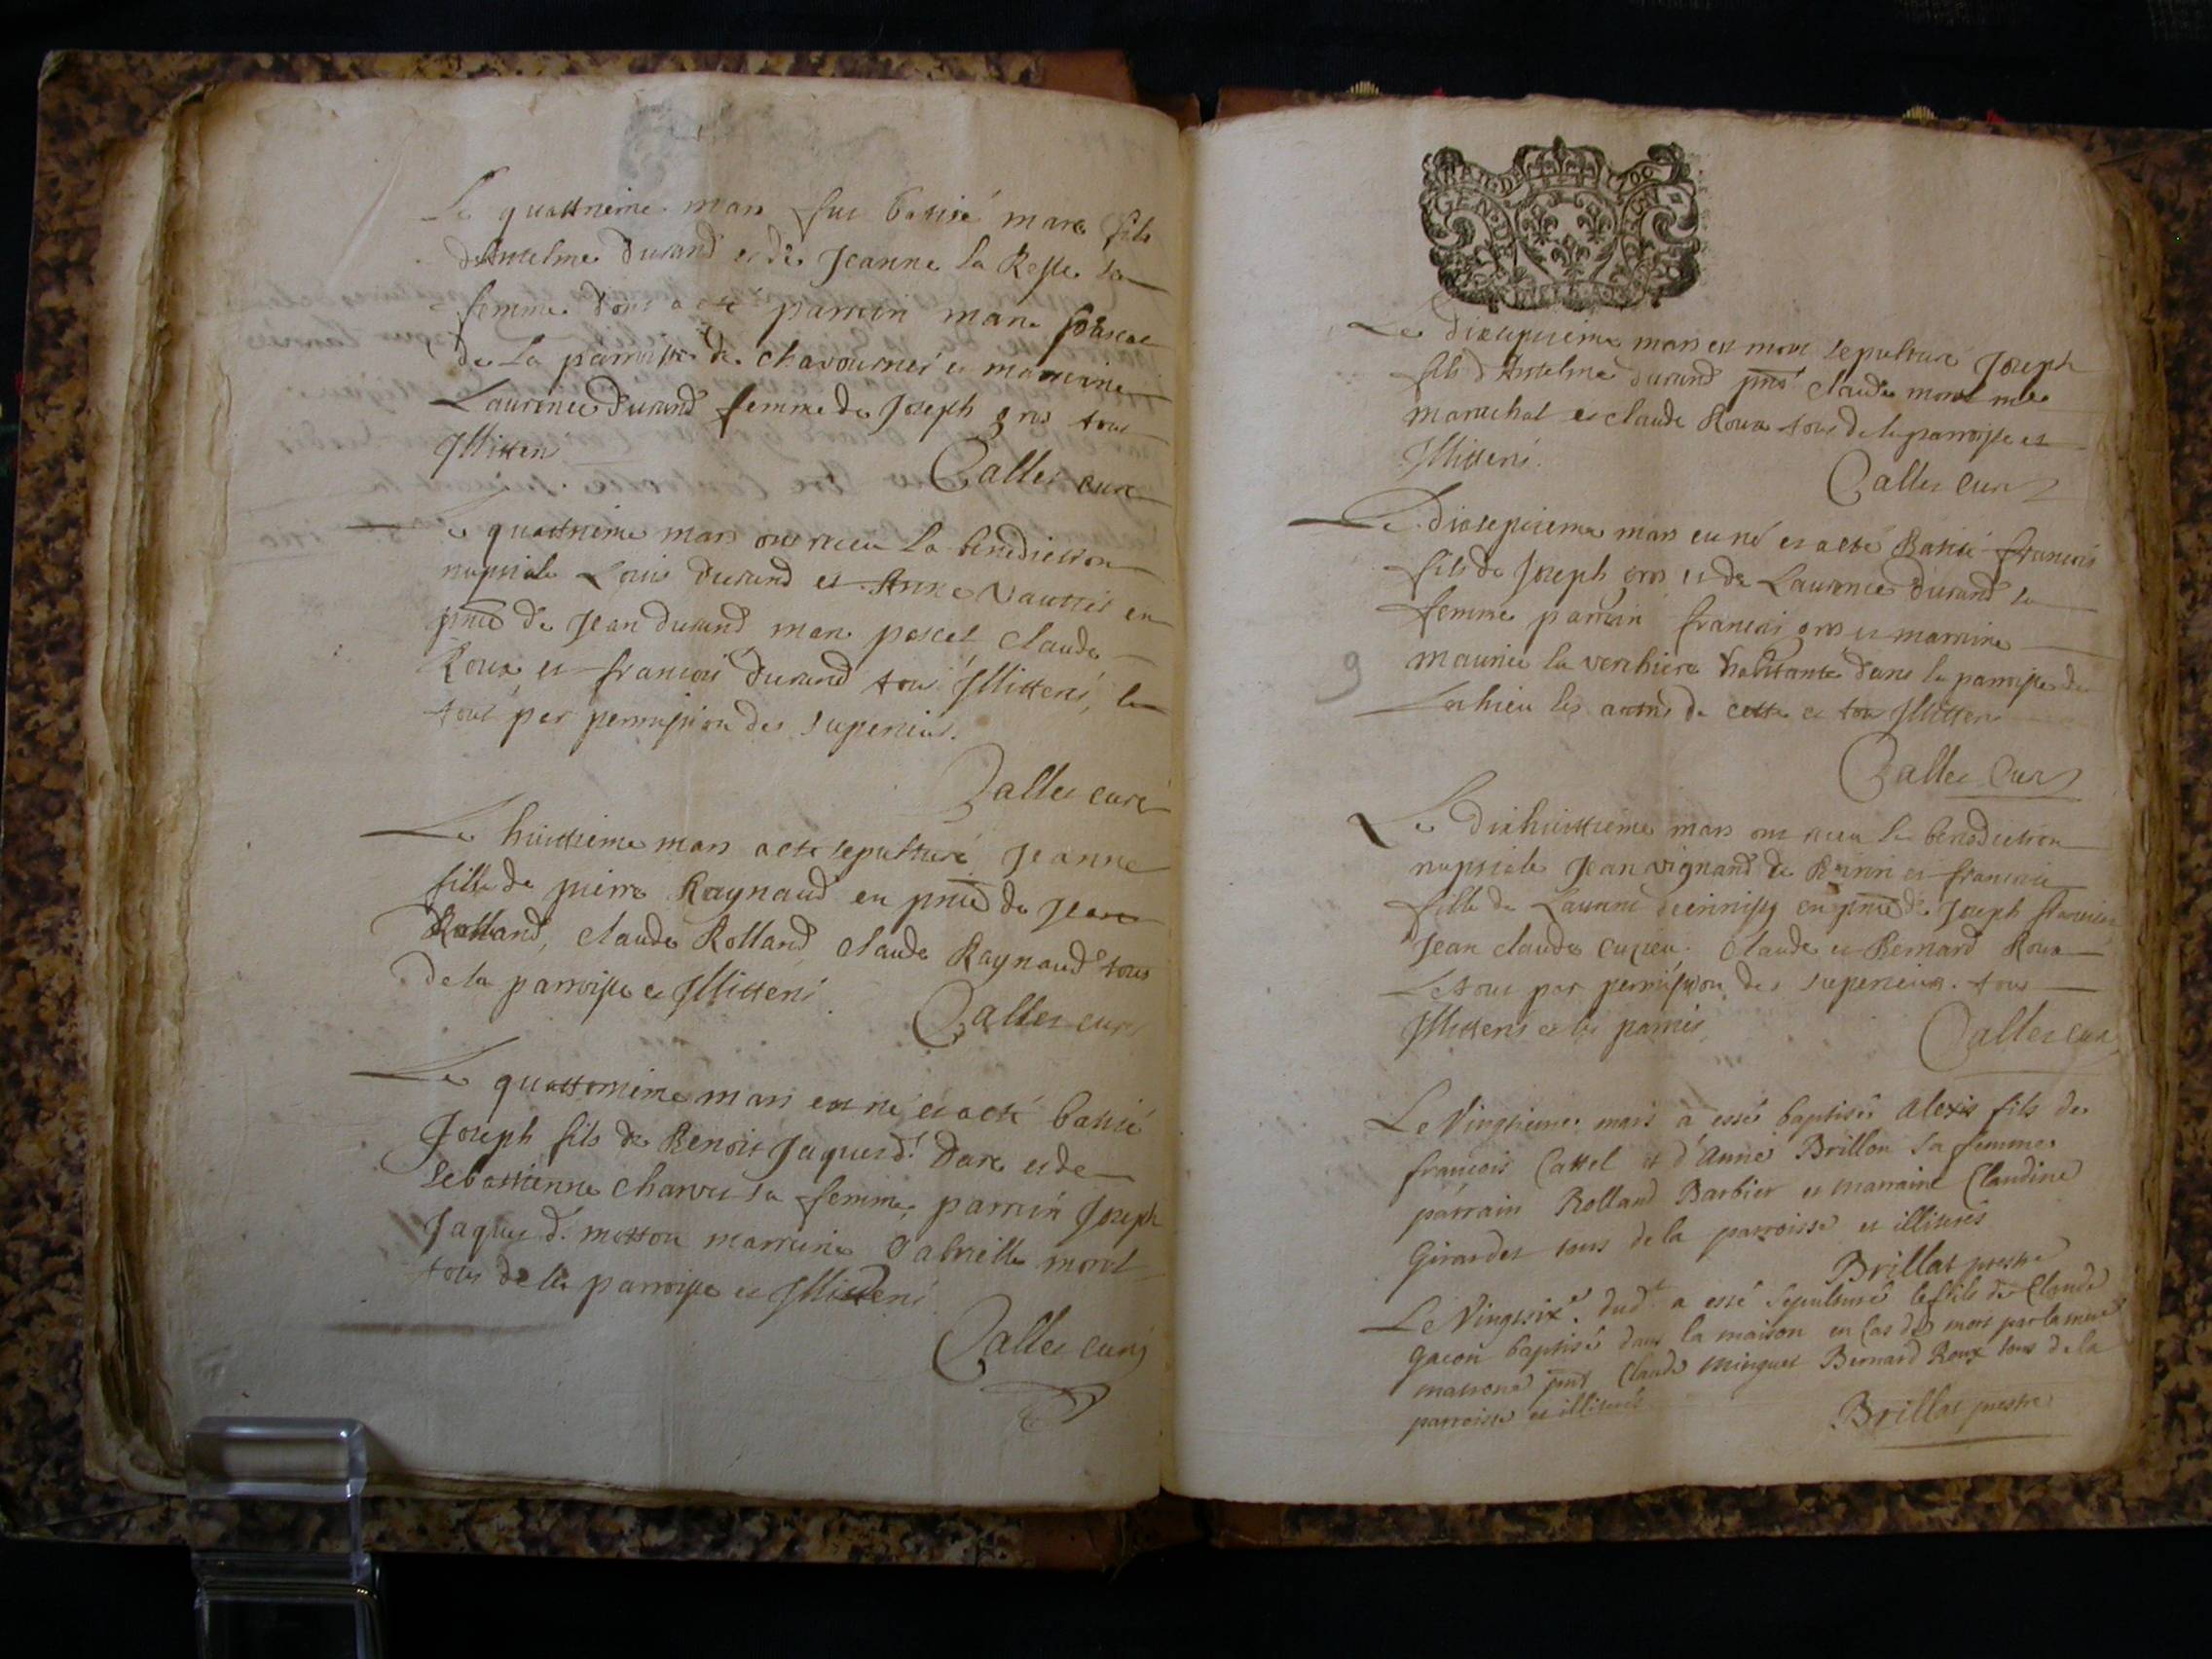 Le quattrieme mars fut batisé marc fils
d'Antelme durand et de Jeanne la Reste sa
femme dont a esté parrein marc pascal
de la parroisse de chavournei et marreine
Laurence durand femme de Joseph gros tous
Illitteré
Galles curé
Le quattrieme mars ont receu la benediction
nuptiale Louis durand et Anne Vauttié en
pnce de Jean durand marc pascal, claude
Roux et francois durand tous Illitteré, le
tout par permission des superieurs.
Galles curé
Le huittieme mars a este sepulturé Jeanne
fille de pierre Raynaud en pnce de Jean
Rolland, claude Rolland claude Raynaud tous
de la parroisse et Illitteré
Galles curé
Le quattorzieme mars est né et a esté batisé
Joseph fils de Benoit Jaques d. Darc et de
Sebastienne charvet sa femme, parrein Joseph
Jaques d. motton marreine Gabrielle morel
tous de la parroisse et Illitteré
Galles curé
GEN
Le dixseptieme mars est mort sepulturé Joseph
fils d'Antelme durand pnts claude morel me
marechal et claude Roux tous de la parroisse et
Illitteré.
Galles curé
Le dixseptieme mars est né et a esté Batisé francois
fils de Joseph gros et de Laurence durand sa
femme parrein francois gros et marreine
maurice la verchiere habitante dans la parroisse de
Lochieu les autres de cette et tous Illitteré
9
Galles curé
Le dixhuittieme mars ont receu la benediction
nuptiale Jean vignand de et francoise
fille de Laurent en pnce de Joseph francois
Jean claude cuzieu. Claude et Bernard Roux
Le tout par permission des superieurs. tous
Illitteré et les parties
Galles curé
Le Vingtieme mars a esté baptisé Alexis fils de
francois Cattel et d'Anne Brillon sa femme
parrain Rolland Barbier et marraine Claudine
Girardet tous de la parroisse et illiterés
Brillat prestre
Le Vingtsixe. dudt a esté sepulturé le fils de Claude
Gacon baptisé dans la maison en cas de mort par la mere
matrone pnt Claude Minguet Bernard Roux tous de la
parroisse et illiterés
Brillat prestre